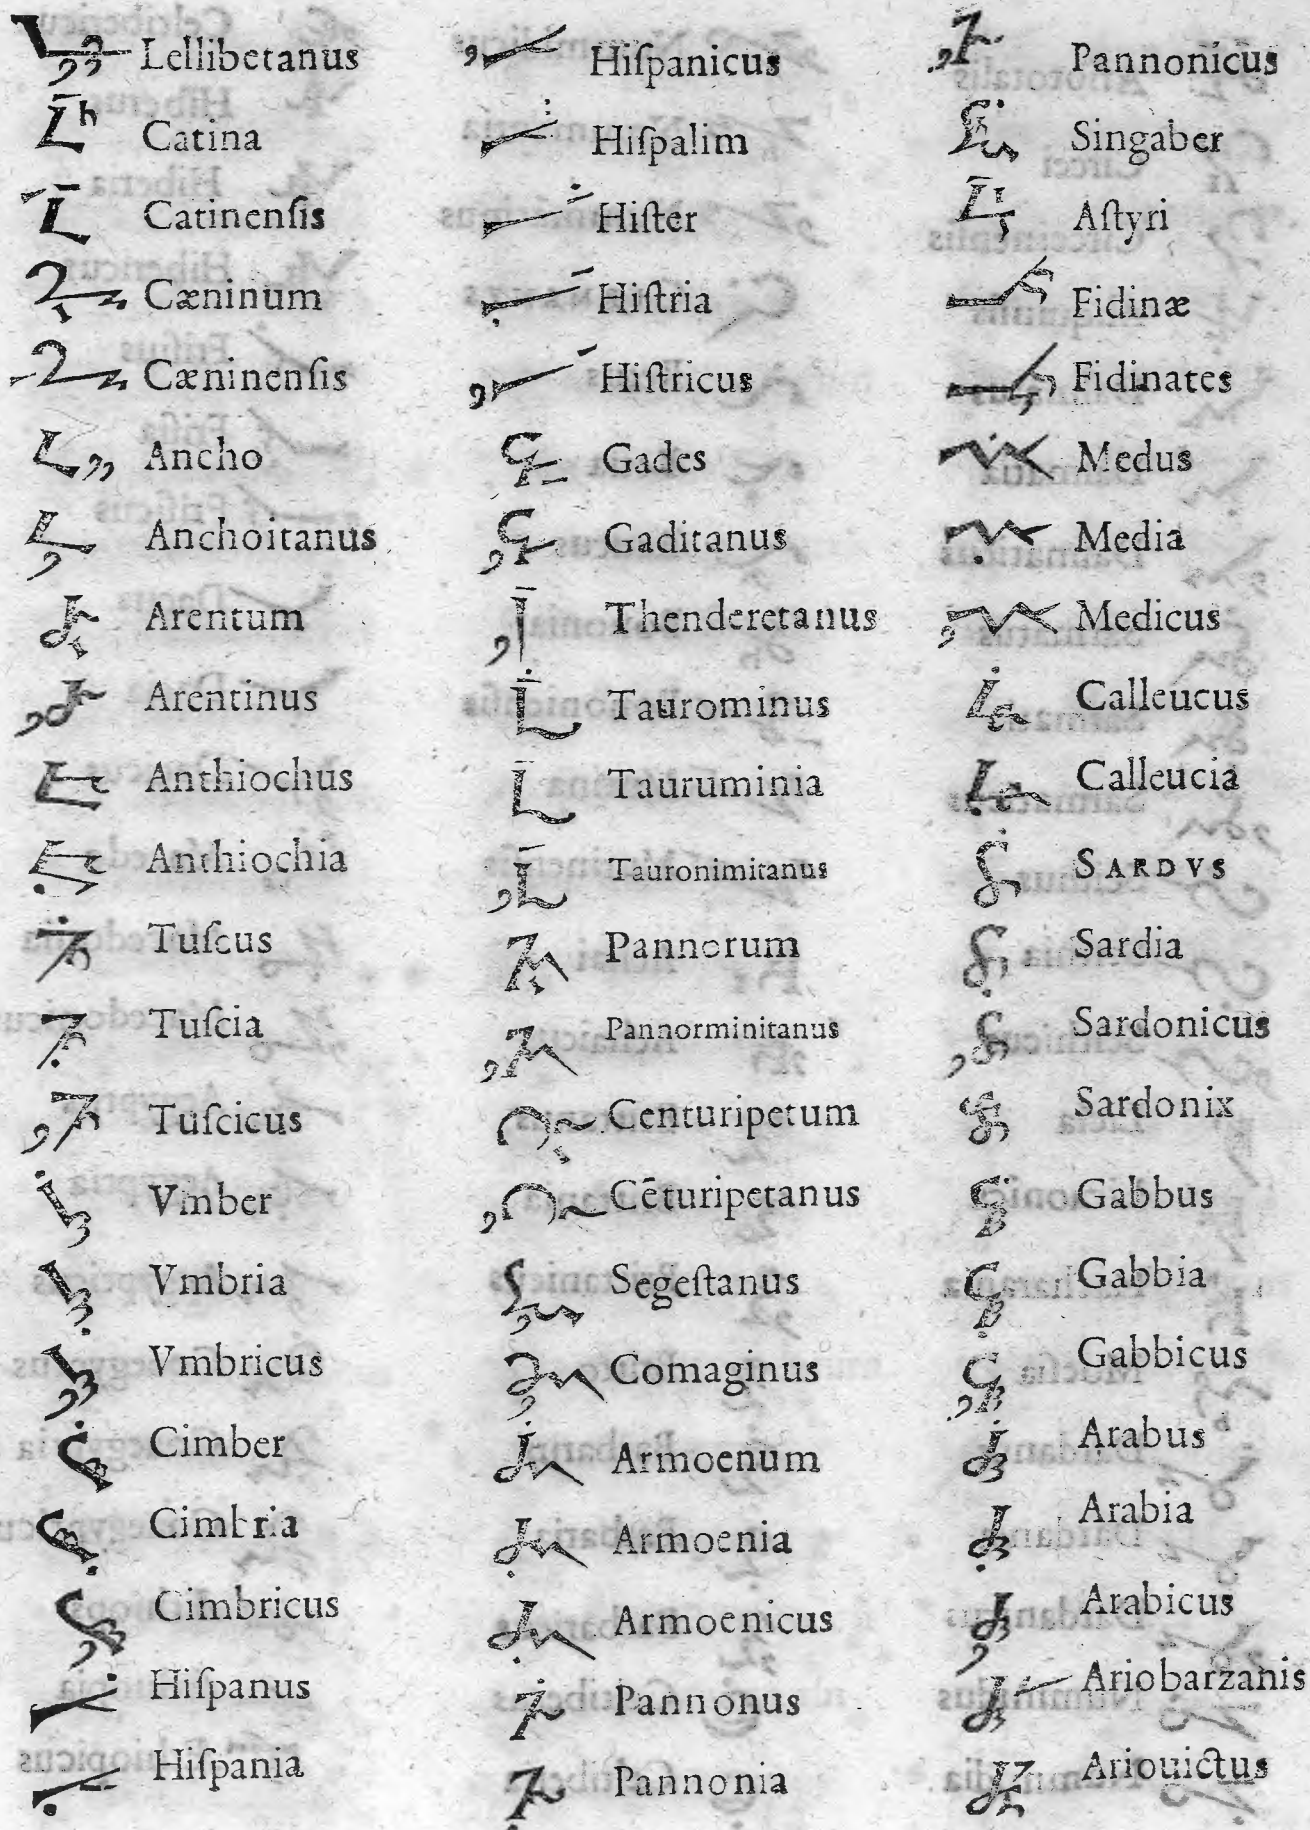 Lellibetanus
Catina
Catinenſis
Cæninum
Cæninenſis
Ancho
Anchoitanus
Arentum
Arentinus
Anthiochus
Anthiochia
Tuſcus
Tuſcia
Tuſcicus
Vmber
Vmbria
Vmbricus
Cimber
Cimbria
Cimbricus
Hiſpanus
Hiſpania
Hiſpanicus
Hiſpalim
Hiſter
Hiſtria
Hiſtricus
Gades
Gaditanus
Thenderetanus
Taurominus
Tauruminia
Tauronimitanus
Pannorum
Pannorminitanus
Centuripetum
Cēturipetanus
Segeſtanus
Comaginus
Armoenum
Armoenia
Armoenicus
Pannonus
Pannonia
Pannonicus
Singaber
Aſtyri
Fidinæ
Fidinates
Medus
Media
Medicus
Calleucus
Calleucia
SARDVS
Sardia
Sardonicus
Sardonix
Gabbus
Gabbia
Gabbicus
Arabus
Arabia
Arabicus
Ariobarzanis
Ariouictus